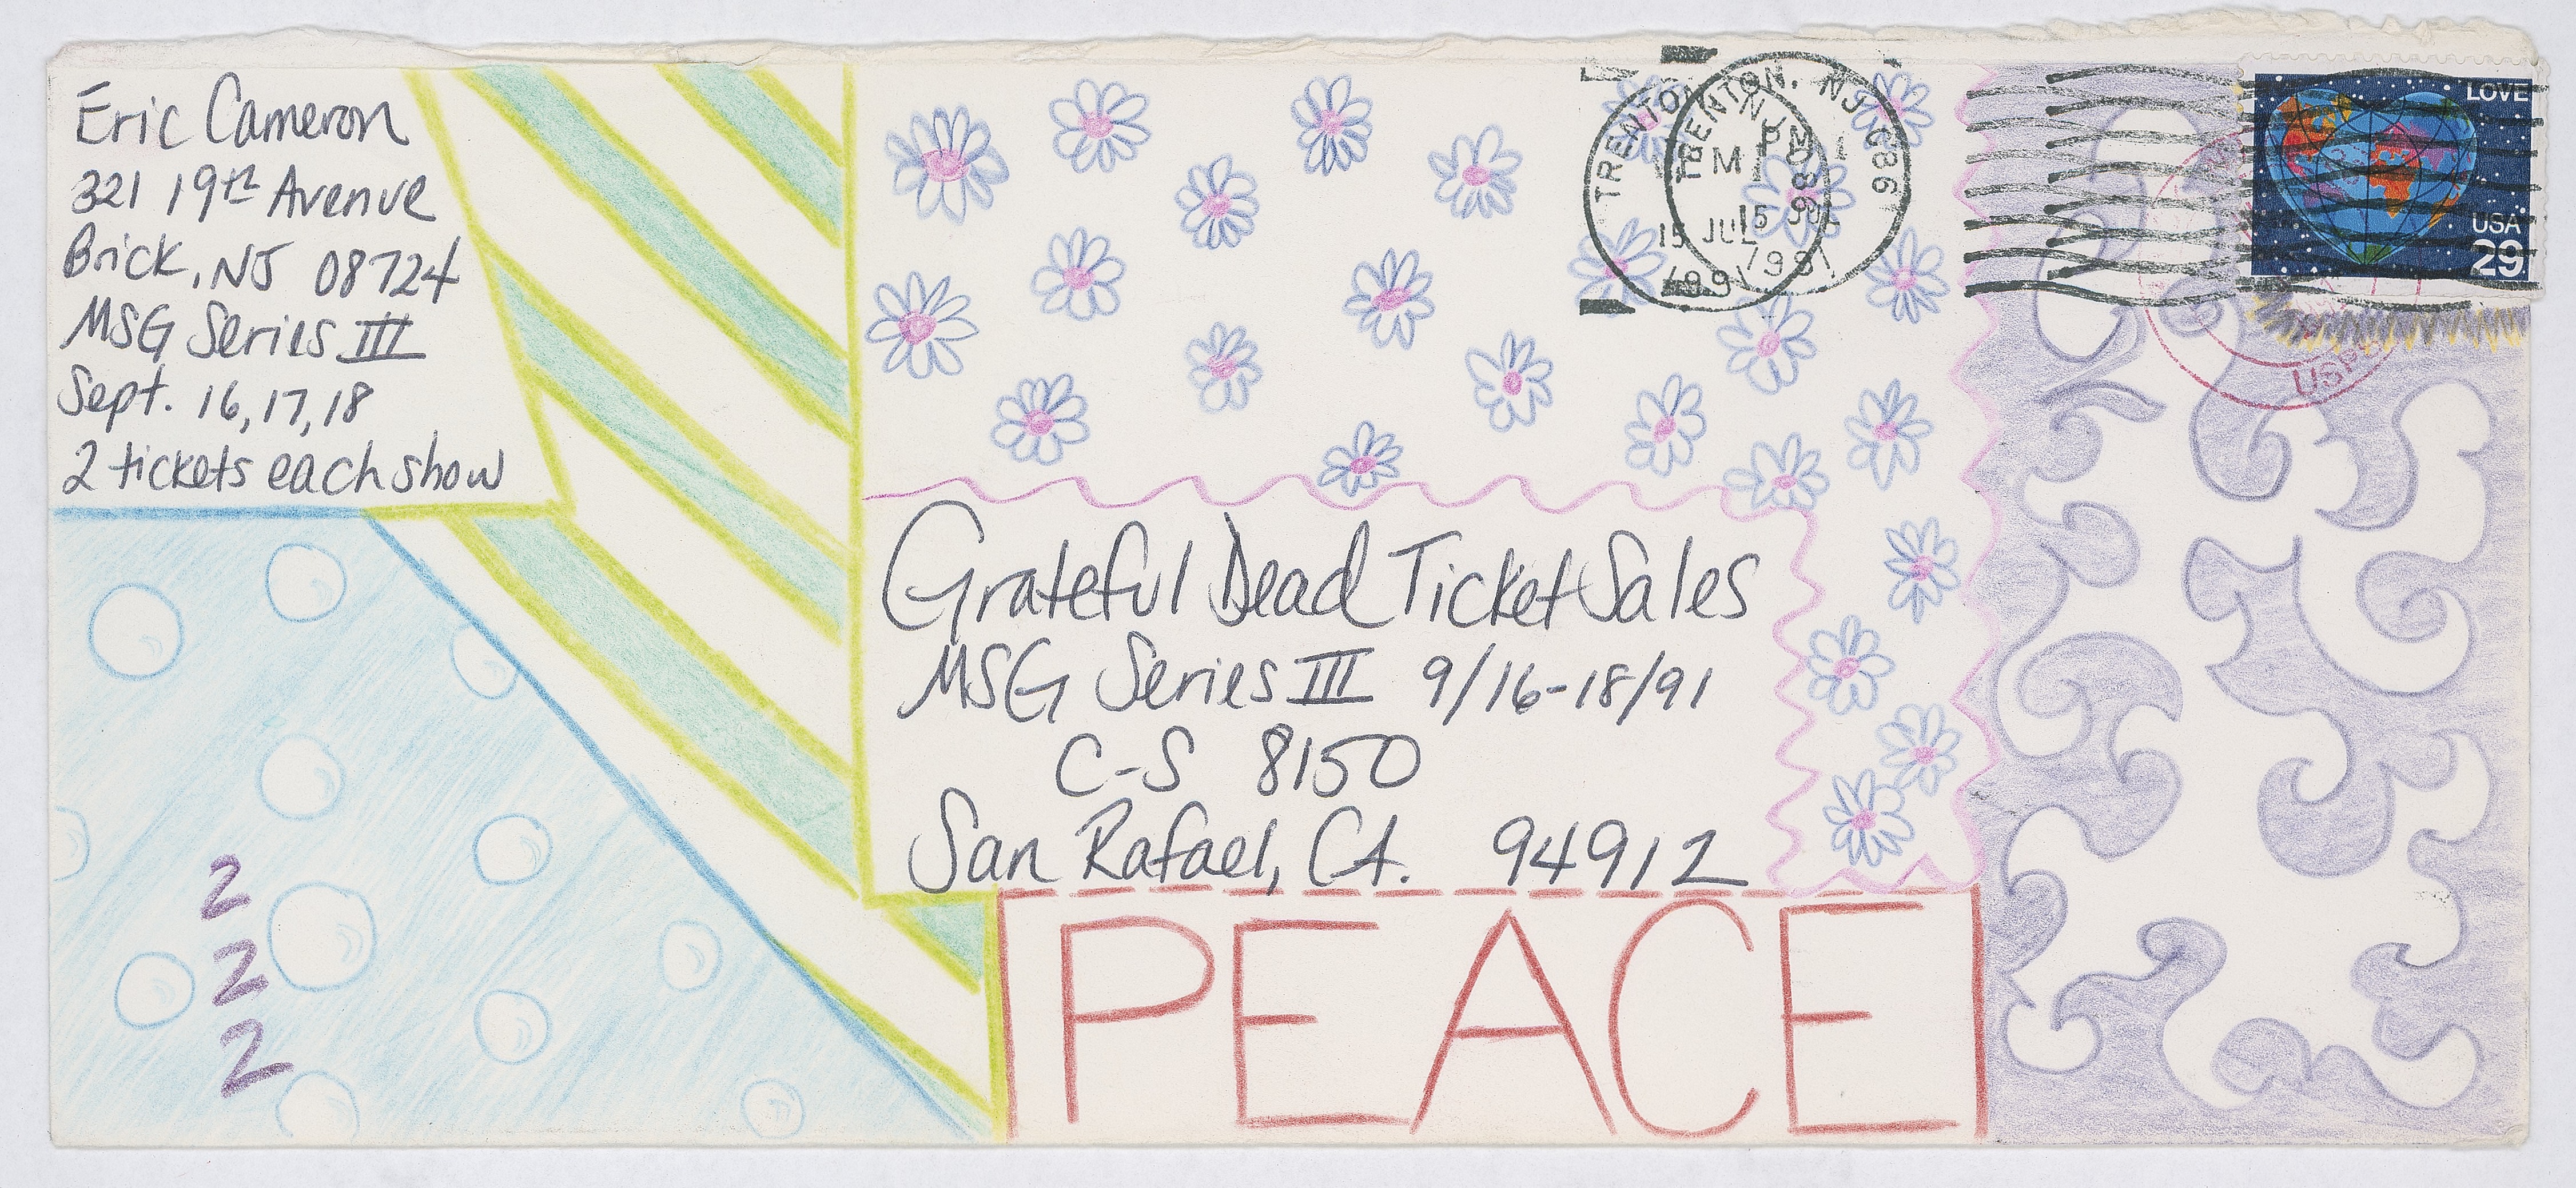 Eric Cameron
321 19th Avenue
Brick, NJ 08724
MSG Series III
Sept. 16, 17, 18
2 tickets each show
TRENTON, NJ 086
PM
15 JUL
1991
TRENTON, NJ 086
PM
15 JUL
1991
LOVE
USA
29
USP
Grateful Dead Ticket Sales
MSG Series III 9/16-18/91
C-S 8150
San Rafael, CA. 94912
2
2
2
PEACE